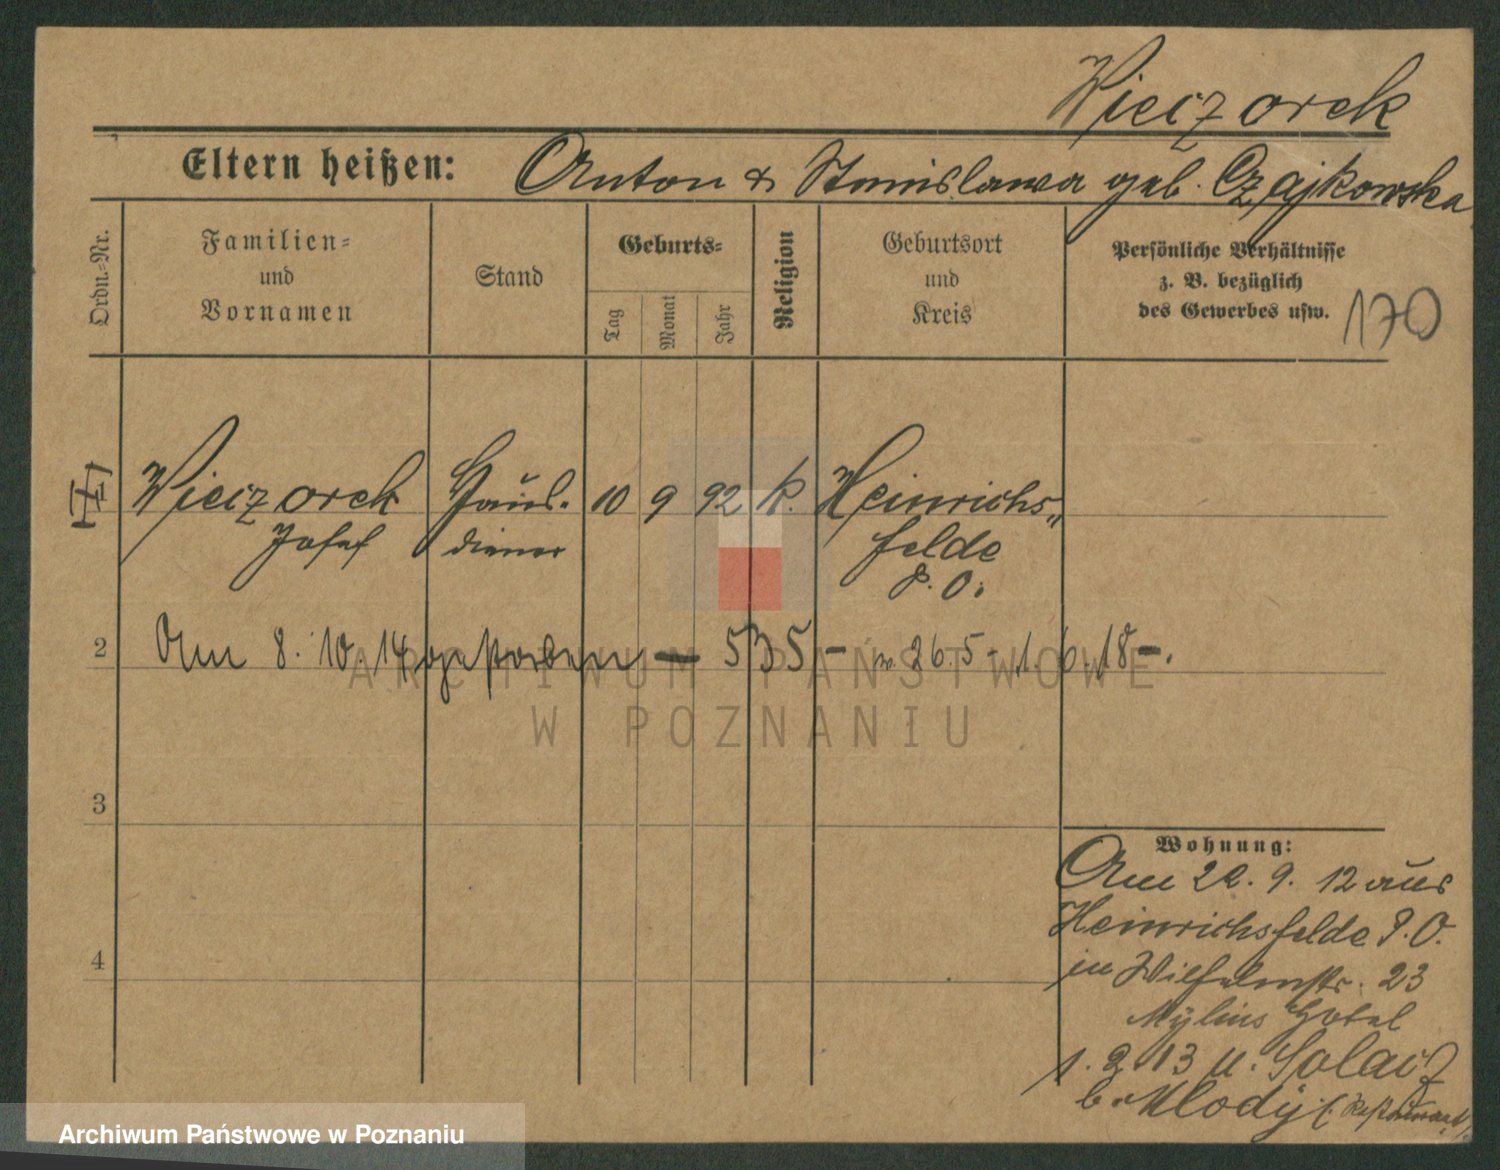 Wieczorek
Eltern heißen: Anton & Stanislawa geb. Czajkowska
Ordn.=Nr.
Familien=
und
Vornamen
Stand
Geburts=
Tag
Monat
Jahr
Religion
Geburtsort
und
Kreis
Persönliche Verhältnisse
z. B. bezüglich
des Gewerbes usw.
170
Wieczorek Haus- 10 9 92 k. Heinrichs-
Josef diener felde
P. O.
2 Am 8. 10. 14 gestorben — 535 – 26.5 - 1. 6. 18 –.
ARCHIWUM PAŃSTWOWE
W POZNANIU
3
4
Wohnung:
Am 22. 9. 12 aus
Heinrichsfelde P. O.
in Wilhelmstr. 23
Mylius Hotel
1. 2. 13 n. Solacz
b. Mlody (Restaurant)
Archiwum Państwowe w Poznaniu